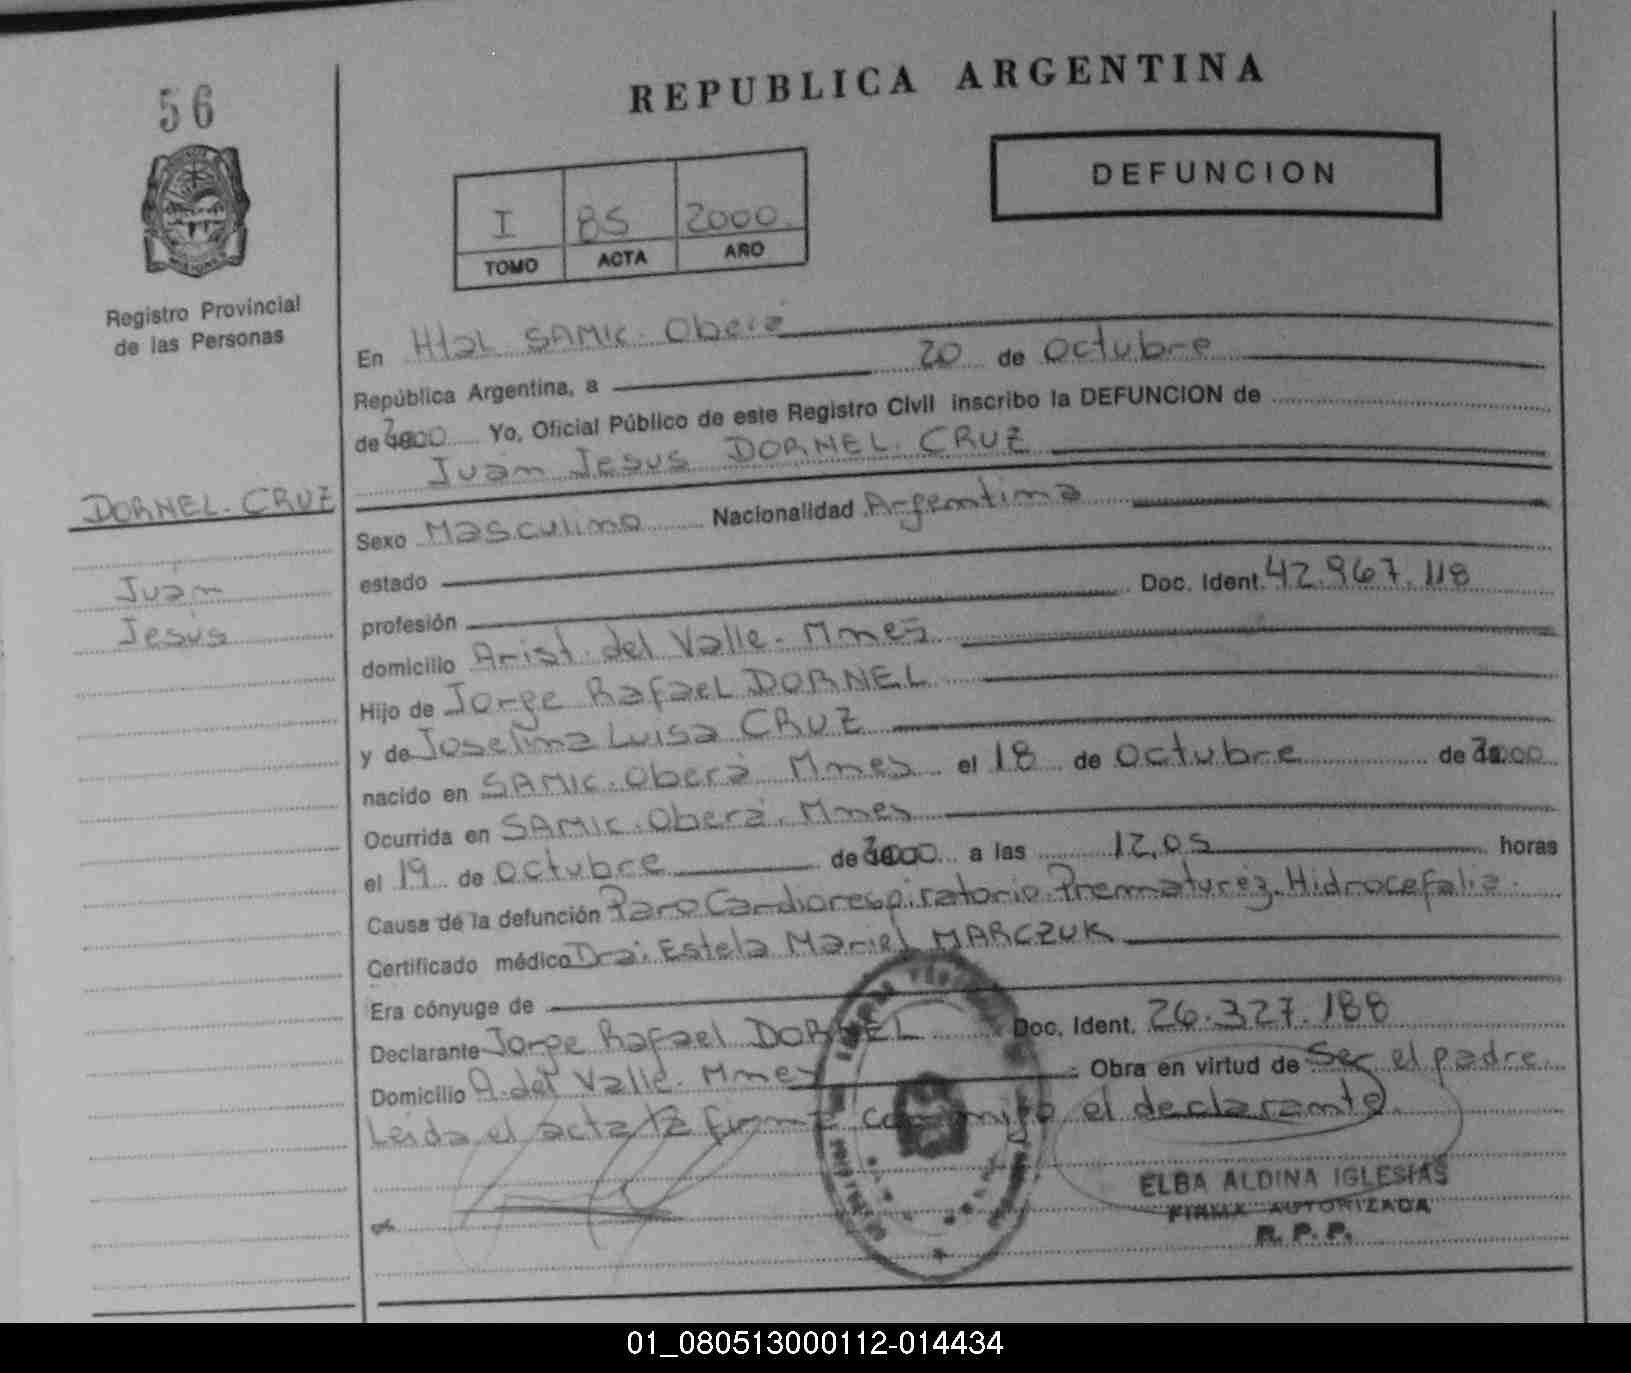 56
REPUBLICA ARGENTINA
DEFUNCION
I 85 2000.
TOMO ACTA AÑO
Registro Provincial
de las Personas
En Htal SAMIC. Oberá
República Argentina, a 20 de Octubre
de 2000 Yo, Oficial Público de este Registro Civil inscribo la DEFUNCION de
Juan Jesus DORNEL. CRUZ
DORNEL. CRUZ
Juan
Jesús
Sexo Masculino Nacionalidad Argentina
estado
profesión Doc. Ident. 42.967.118
domicilio Arist. del Valle. Mnes
Hijo de Jorge Rafael DORNEL
y de Joselina Luisa CRUZ
nacido en SAMIC. Oberá Mnes el 18 de Octubre de 2000
Ocurrida en SAMIC. Oberá. Mnes
el 19 de Octubre de 2000 a las 12,05 horas
Causa de la defunción Paro Cardiorespiratorio. Prematurez. Hidrocefalia.
Certificado médico Dra: Estela Mariel MARCZUK
Era cónyuge de
Declarante Jorge Rafael DORNEL Doc. Ident. 26.327.188
Domicilio A. del Valle. Mnes Obra en virtud de Ser el padre
Leída el acta la firma conmigo el declarante.
ELBA ALDINA IGLESIAS
FIRMA AUTORIZADA
R. P. P.
01_080513000112-014434